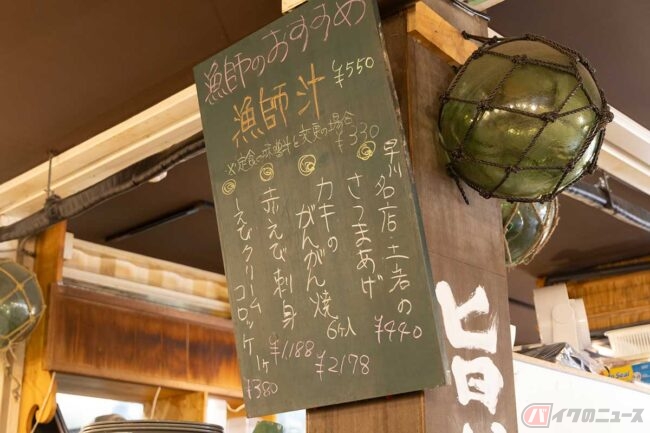 漁師のおすすめ
漁師汁 ¥550
※定食の味噌汁を変更の場合 ¥330
◎早川名店土岩のさつまあげ ¥440
◎カキのがんがん焼 6ケ入 ¥2178
◎赤えび刺身 ¥1188
◎えびクリームコロッケ 1ケ ¥380
旨い
バイクのニュース